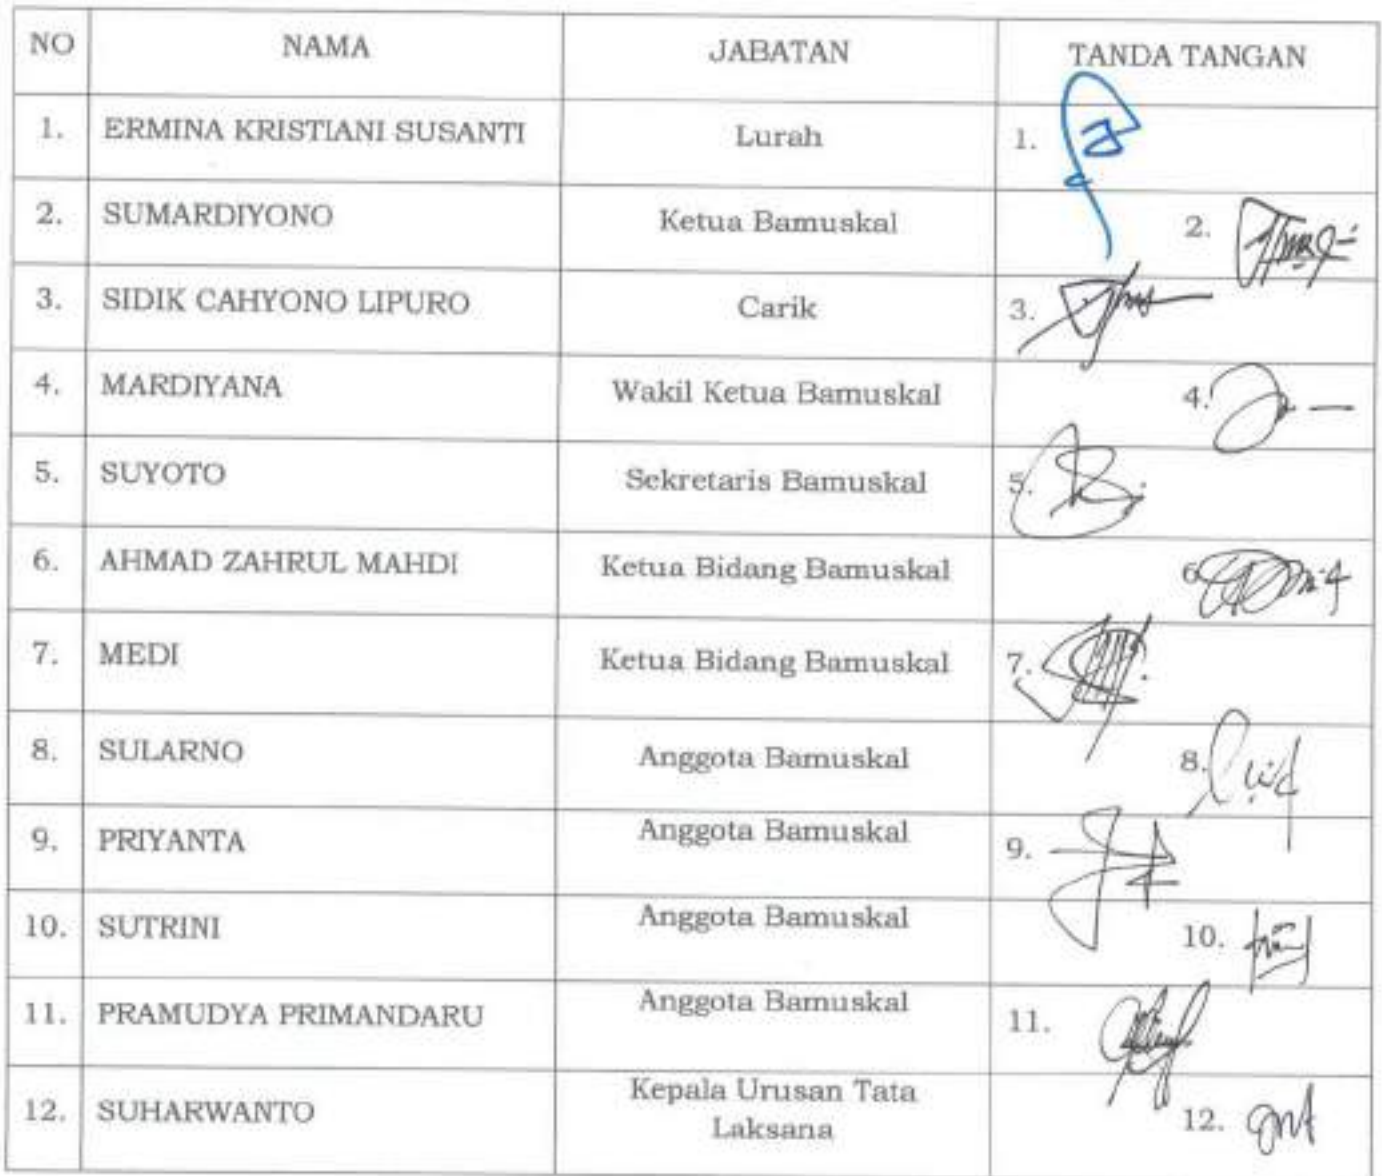 NO NAMA JABATAN TANDA TANGAN
1. ERMINA KRISTIANI SUSANTI Lurah 1.
2. SUMARDIYONO Ketua Bamuskal 2.
3. SIDIK CAHYONO LIPURO Carik 3.
4. MARDIYANA Wakil Ketua Bamuskal 4.
5. SUYOTO Sekretaris Bamuskal 5.
6. AHMAD ZAHRUL MAHDI Ketua Bidang Bamuskal 6
7. MEDI Ketua Bidang Bamuskal 7.
8. SULARNO Anggota Bamuskal 8.
9. PRIYANTA Anggota Bamuskal 9.
10. SUTRINI Anggota Bamuskal 10.
11. PRAMUDYA PRIMANDARU Anggota Bamuskal 11.
12. SUHARWANTO Kepala Urusan Tata
Laksana 12.